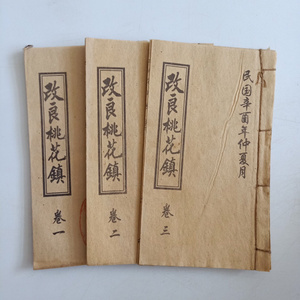 改良桃花鎮
卷一
改良桃花鎮
卷二
改良桃花鎮
卷三
民国辛酉年仲夏月